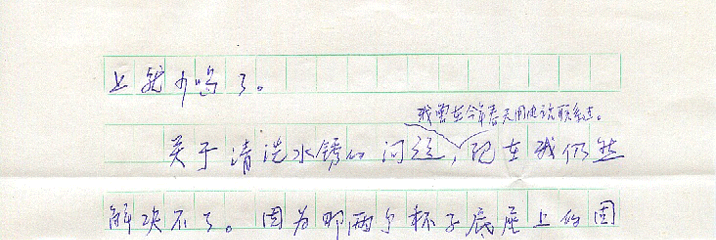 上就少吗了。
我曾在今年春天用电话联系过。
关于清洗水锈的问题，现在我仍然
解决不了。因为那两个杯子底座上的固